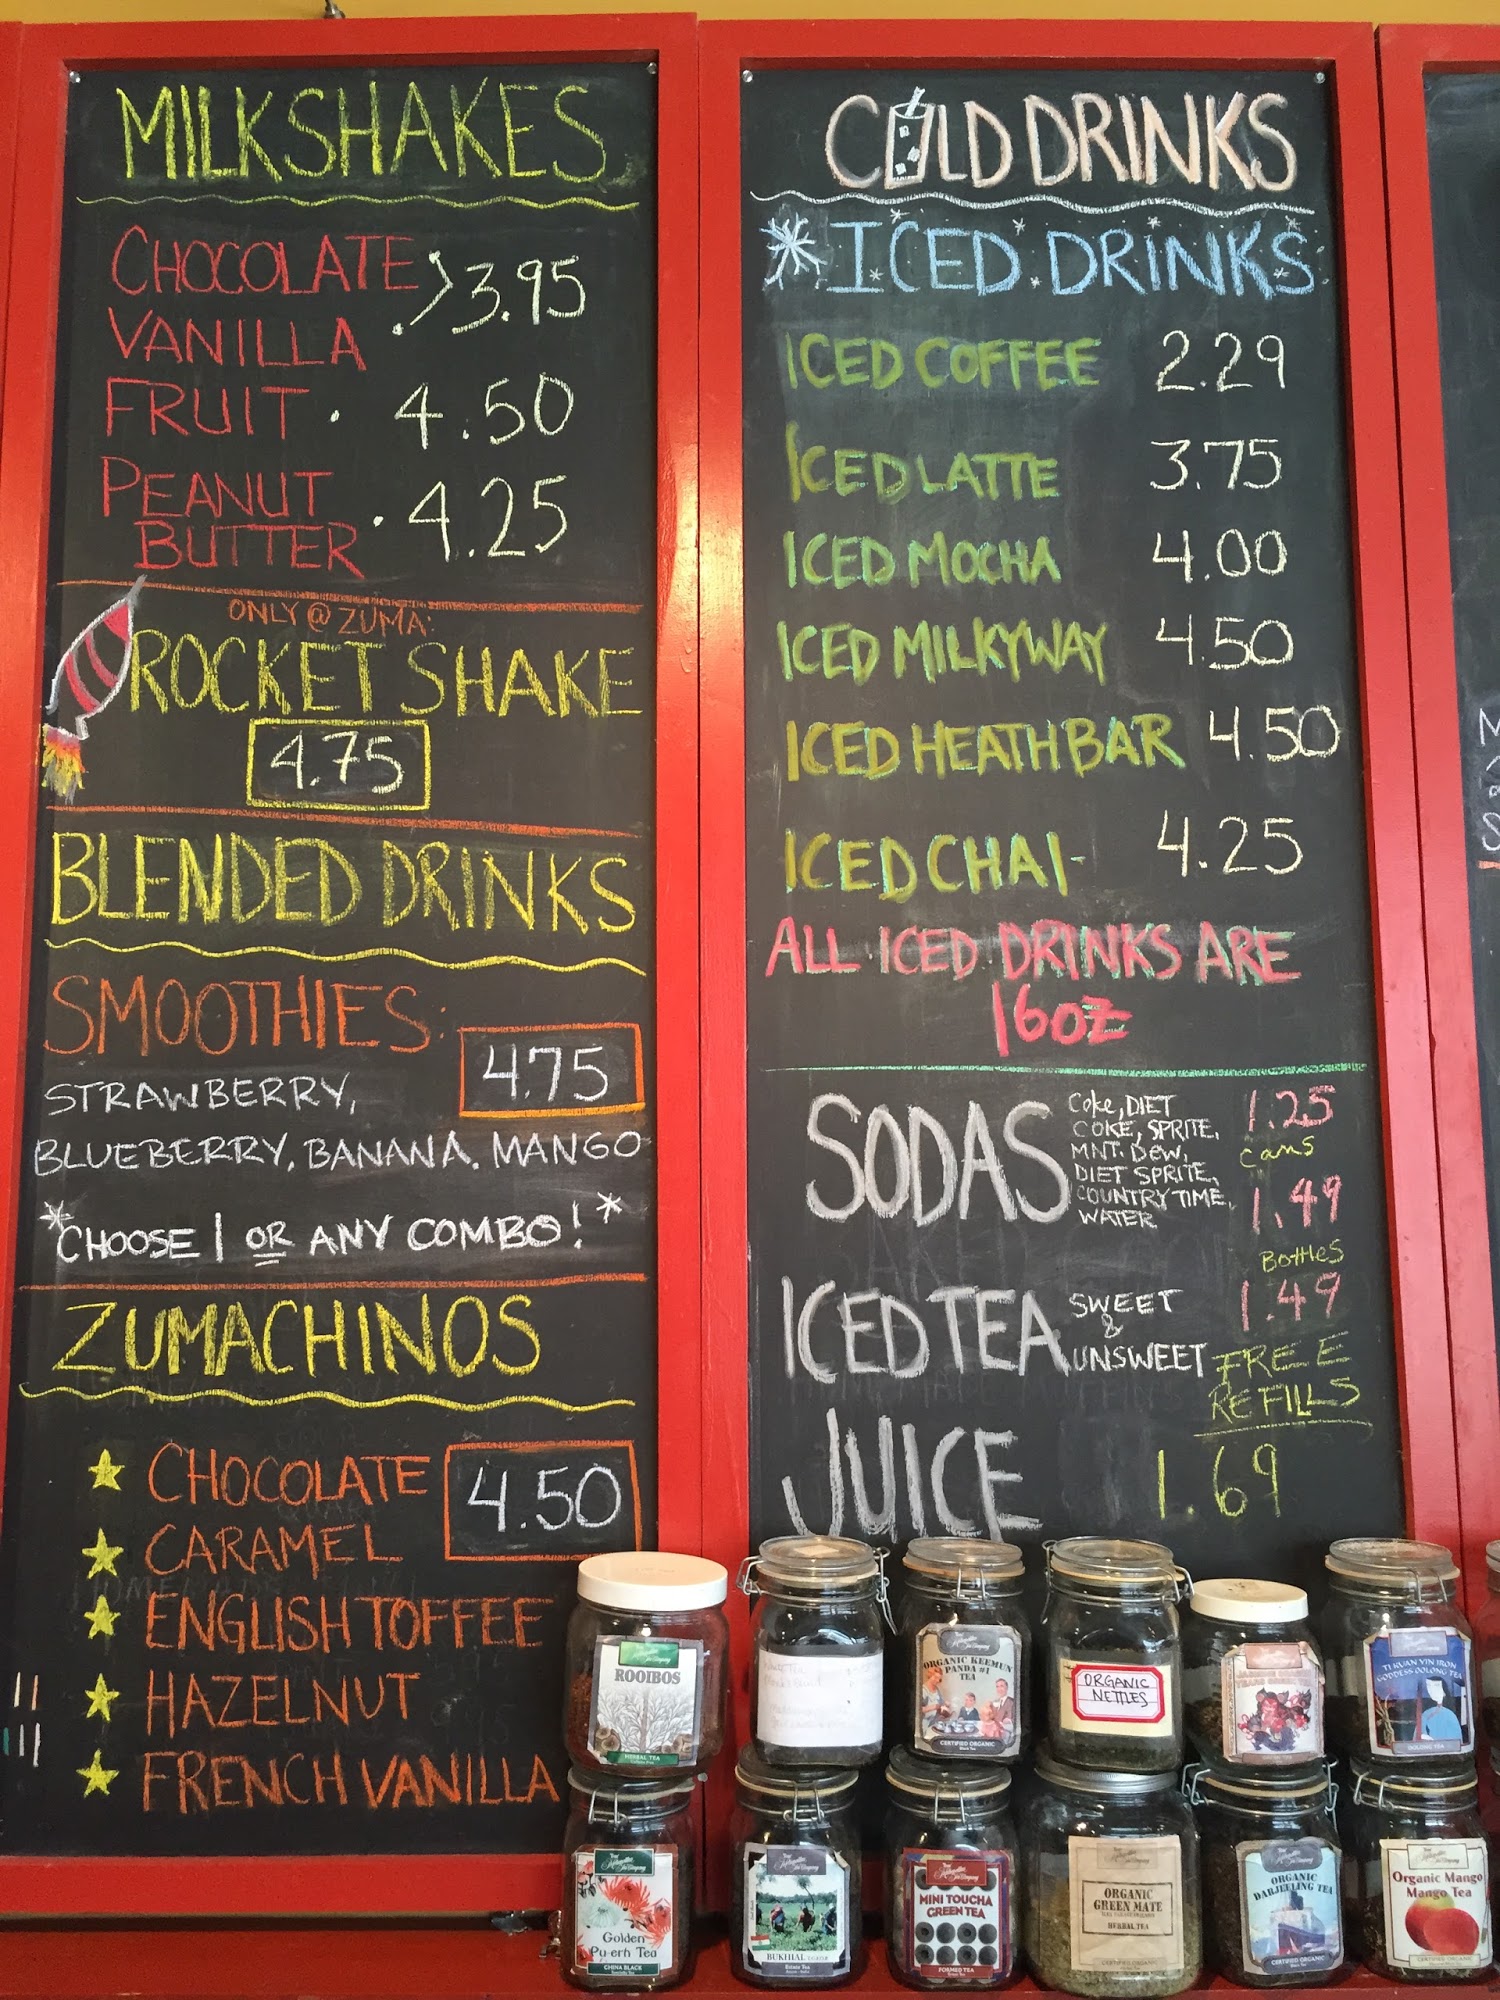 MILKSHAKES
CHOCOLATE
VANILLA
3.95
FRUIT . 4.50
PEANUT
BUTTER . 4.25
ONLY @ ZUMA:
ROCKET SHAKE
4.75
BLENDED DRINKS
SMOOTHIES:
4.75
STRAWBERRY,
BLUEBERRY, BANANA, MANGO
*CHOOSE 1 OR ANY COMBO!*
ZUMACHINOS
CHOCOLATE
4.50
CARAMEL
ENGLISH TOFFEE
HAZELNUT
FRENCH VANILLA
COLD DRINKS
ICED DRINKS
ICED COFFEE 2.29
ICED LATTE 3.75
ICED MOCHA 4.00
ICED MILKYWAY 4.50
ICED HEATH BAR 4.50
ICED CHAI- 4.25
ALL ICED DRINKS ARE
16oz
SODAS
Coke, DIET
COKE, SPRITE,
MNT. DEW,
DIET SPRITE,
COUNTRY TIME,
WATER
1.25
cans
1.49
Bottles
ICED TEA
SWEET
&
UNSWEET
1.49
FREE
REFILLS
JUICE 1.69
ROOIBOS
HERBAL TEA
ORGANIC KEEMUN
PANDA #1
TEA
CERTIFIED ORGANIC
Black Tea
ORGANIC
NETTLES
TI KUAN YIN IRON
GODDESS OOLONG TEA
OOLONG TEA
Golden
Pu-erh Tea
CHINA BLACK
BUKHIAL
Estate Tea
MINI TOUCHA
GREEN TEA
FORMED TEA
Green Tea
ORGANIC
GREEN MATE
HERBAL TEA
ORGANIC
DARJEELING TEA
CERTIFIED ORGANIC
Black Tea
Organic Mango
Mango Tea
CERTIFIED ORGANIC